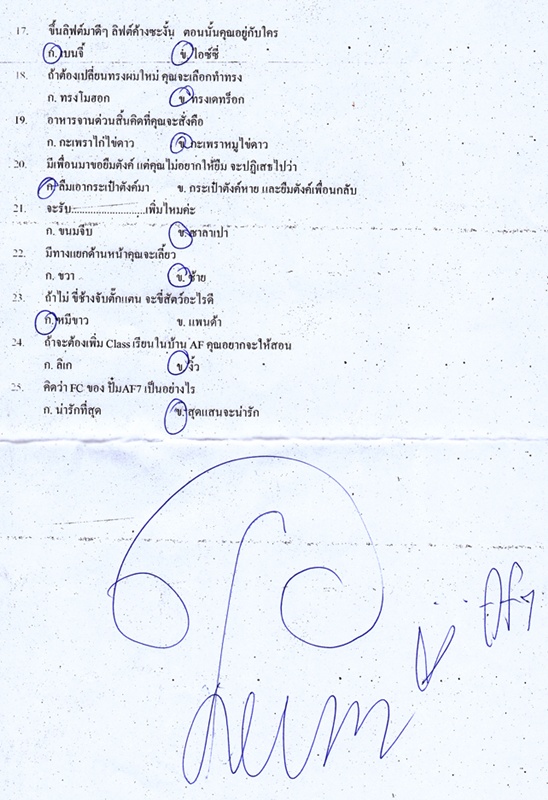 17. ขึ้นลิฟต์มาดีๆ ลิฟต์ค้างซะงั้น ตอนนั้นคุณอยู่กับใคร
ก. เบนจี้ ข. ไอซ์ซี่
18. ถ้าต้องเปลี่ยนทรงผมใหม่ คุณจะเลือกทำทรง
ก. ทรงโมฮอก ข. ทรงเดทร็อก
19. อาหารจานด่วนสิ้นคิดที่คุณจะสั่งคือ
ก. กะเพราไก่ไข่ดาว ข. กะเพราหมูไข่ดาว
20. มีเพื่อนมาขอยืมตังค์ แต่คุณไม่อยากให้ยืม จะปฏิเสธไปว่า
ก. ลืมเอากระเป๋าตังค์มา ข. กระเป๋าตังค์หาย และยืมตังค์เพื่อนกลับ
21. จะรับ..........................เพิ่มไหมค่ะ
ก. ขนมจีบ ข. ซาลาเปา
22. มีทางแยกด้านหน้าคุณจะเลี้ยว
ก. ขวา ข. ซ้าย
23. ถ้าไม่ ขี่ช้างจับตั๊กแตน จะขี่สัตว์อะไรดี
ก. หมีขาว ข. แพนด้า
24. ถ้าจะต้องเพิ่ม Class เรียนในบ้าน AF คุณอยากจะให้สอน
ก. ลิเก ข. งิ้ว
25. คิดว่า FC ของ ปั๊มAF7 เป็นอย่างไร
ก. น่ารักที่สุด ข. สุดแสนจะน่ารัก
Af7